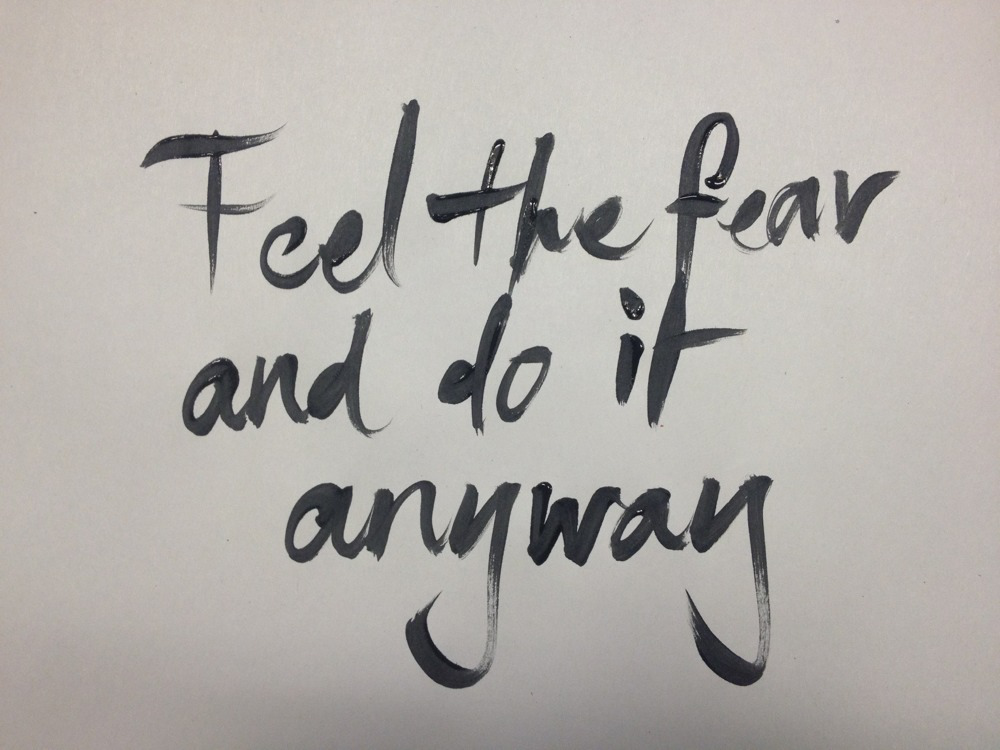 Feel the fear
and do it
anyway